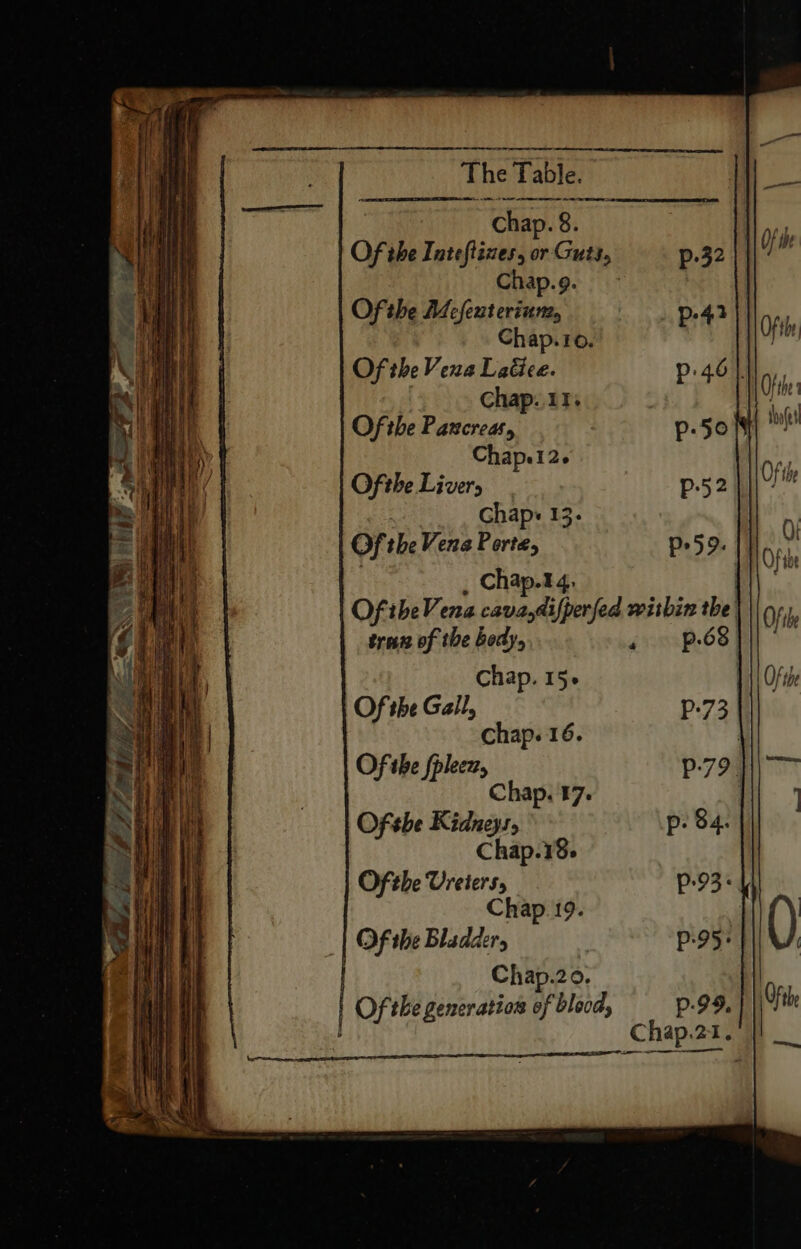 The Table.
Chap. 8.
Of the Inteſtines, or Guts, p.32
Chap.9.
Of the Meſenterium, p.41
Chap.10.
Of the Vena Lactee. p.46
Chap. 11.
Of the Pancreas, p.50
Chap.12.
Of the Liver, p.52
Chap. 13.
Of the Vena Porte, p.59.
Chap.14.
Of the Vena cava, diſperſed within the
trun of the body, p.68
Chap. 15.
Of the Gall, p.73
Chap. 16.
Of the ſpleen, p.79
Chap. 17.
Of the Kidneys, p. 84.
Chap.18.
Of the Ureters, p.93.
Chap 19.
Of the Bladder, p.95.
Chap.20.
Of the generation of blood, p.99.
Chap.21.
Of the
Of the
Of the
Of the
Of
Of the
Of the
Of the
O
Of the